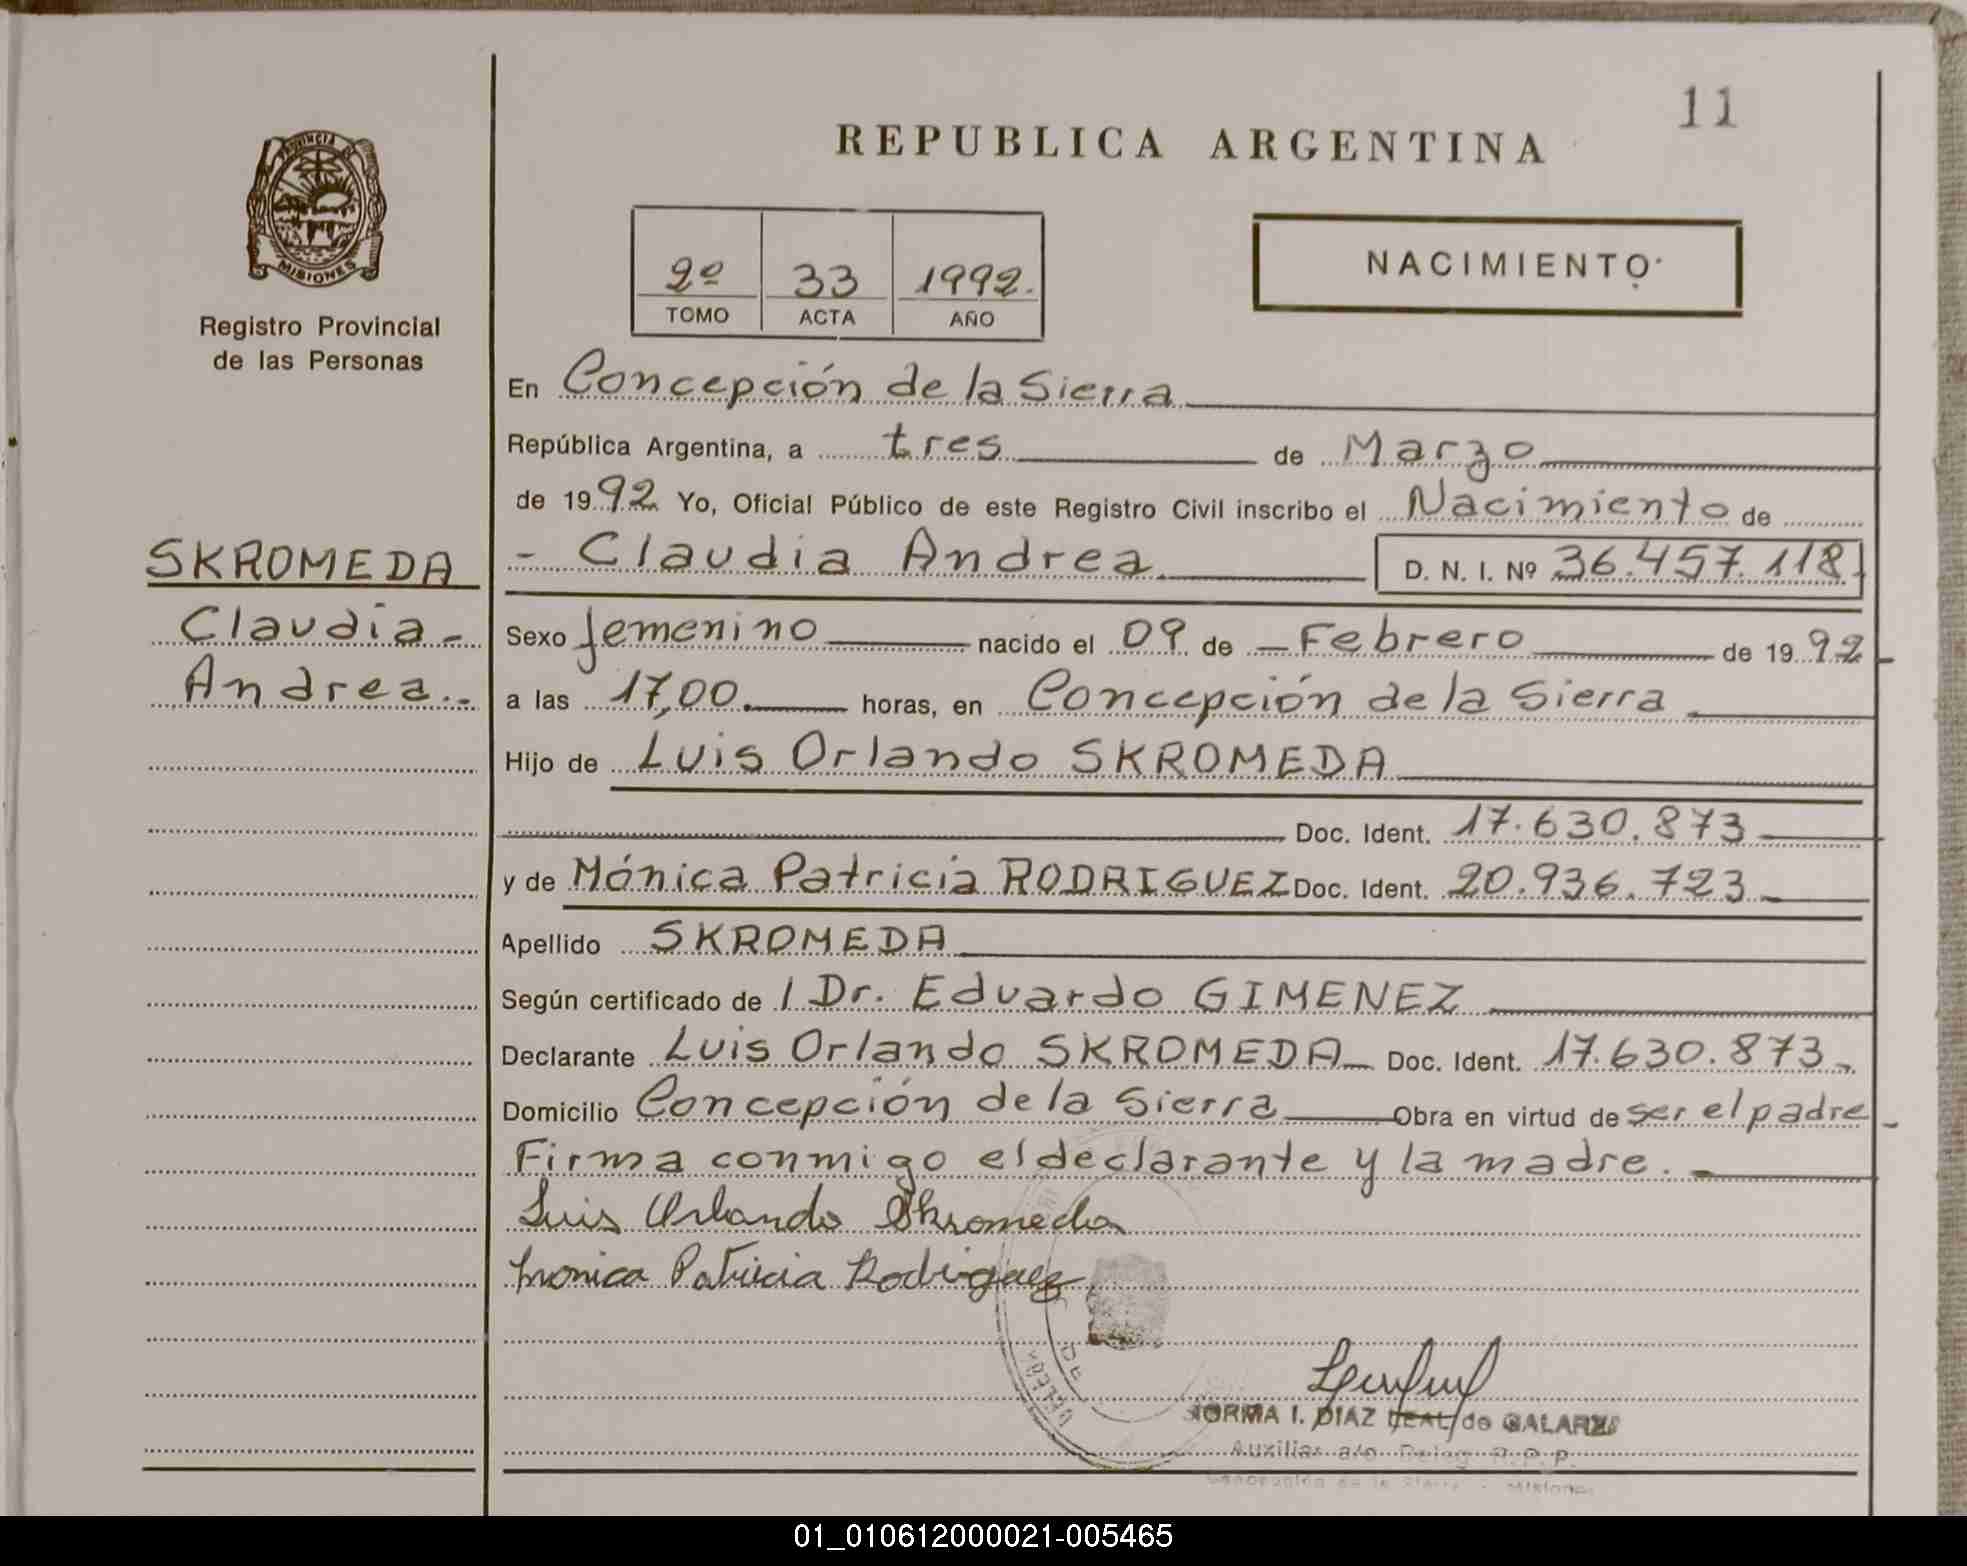 11
REPUBLICA ARGENTINA
PROVINCIA DE
MISIONES
Registro Provincial
de las Personas
2º 33 1992.
TOMO ACTA AÑO
NACIMIENTO
En Concepción de la Sierra
República Argentina, a tres de Marzo
de 1992 Yo, Oficial Público de este Registro Civil inscribo el Nacimiento de
SKROMEDA
Claudia -
Andrea.-
- Claudia Andrea. D. N. I. Nº 36.457.118
Sexo femenino nacido el 09 de - Febrero de 1992
a las 17,00. horas, en Concepción de la Sierra
Hijo de Luis Orlando SKROMEDA
Doc. Ident. 17.630.873
y de Mónica Patricia RODRIGUEZ Doc. Ident. 20.936.723
Apellido SKROMEDA
Según certificado de / Dr. Eduardo GIMENEZ
Declarante Luis Orlando SKROMEDA Doc. Ident. 17.630.873
Domicilio Concepción de la Sierra Obra en virtud de ser el padre -
Firma conmigo el declarante y la madre.
Luis Orlando Skromeda
Monica Patricia Rodriguez
DE
NORMA I. DIAZ LEAL de GALARZA
Auxiliar a/c Deleg R.P.P.
Concepción de la Sierra - Misiones
01_010612000021-005465